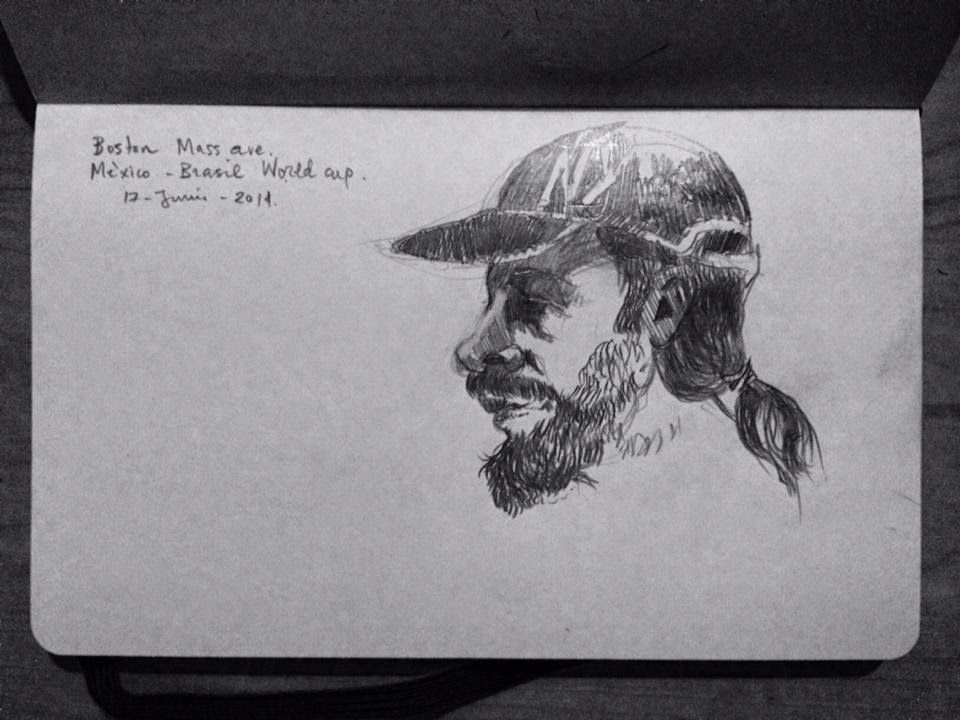 Boston Mass ave.
Mèxico - Brasil World cup.
17 - Junio - 2014.